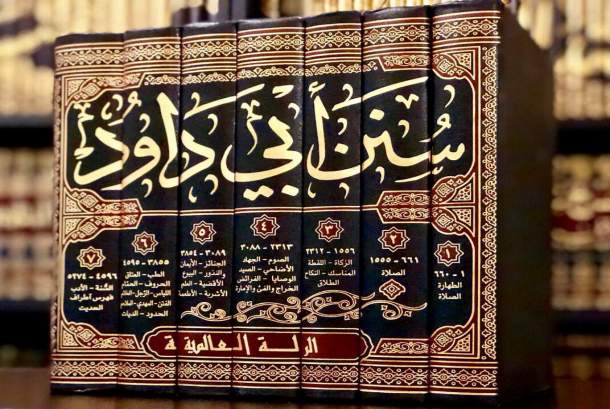 سُنَن أَبِي دَاوُد
١
١ - ٦٦٠
الطهارة
الصلاة
٢
٦٦١ - ١٥٥٥
الصلاة
٣
١٥٥٦ - ٢٣١٢
الزكاة - اللقطة
المناسك - النكاح
الطلاق
٤
٢٣١٣ - ٣٠٨٨
الصوم - الجهاد
الأضاحي - الصيد
الوصايا - الفرائض
الخراج والفئ والإمارة
٥
٣٠٨٩ - ٣٨٥٤
الجنائز - الأيمان
والنذور - البيوع
الأقضية - العلم
الأشربة - الأطعمة
٦
٣٨٥٥ - ٤٥٩٥
الطب - العتاق
الحروف - الحمّام
اللباس - الترجّل -
الفتن - المهدي -
الحدود - الديات
٧
٤٥٩٦ - ٥٢٧٤
السُّنة - الأدب
فهرس أطراف
الحديث